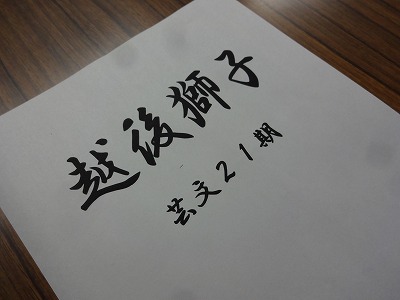 越後獅子
芸文21期